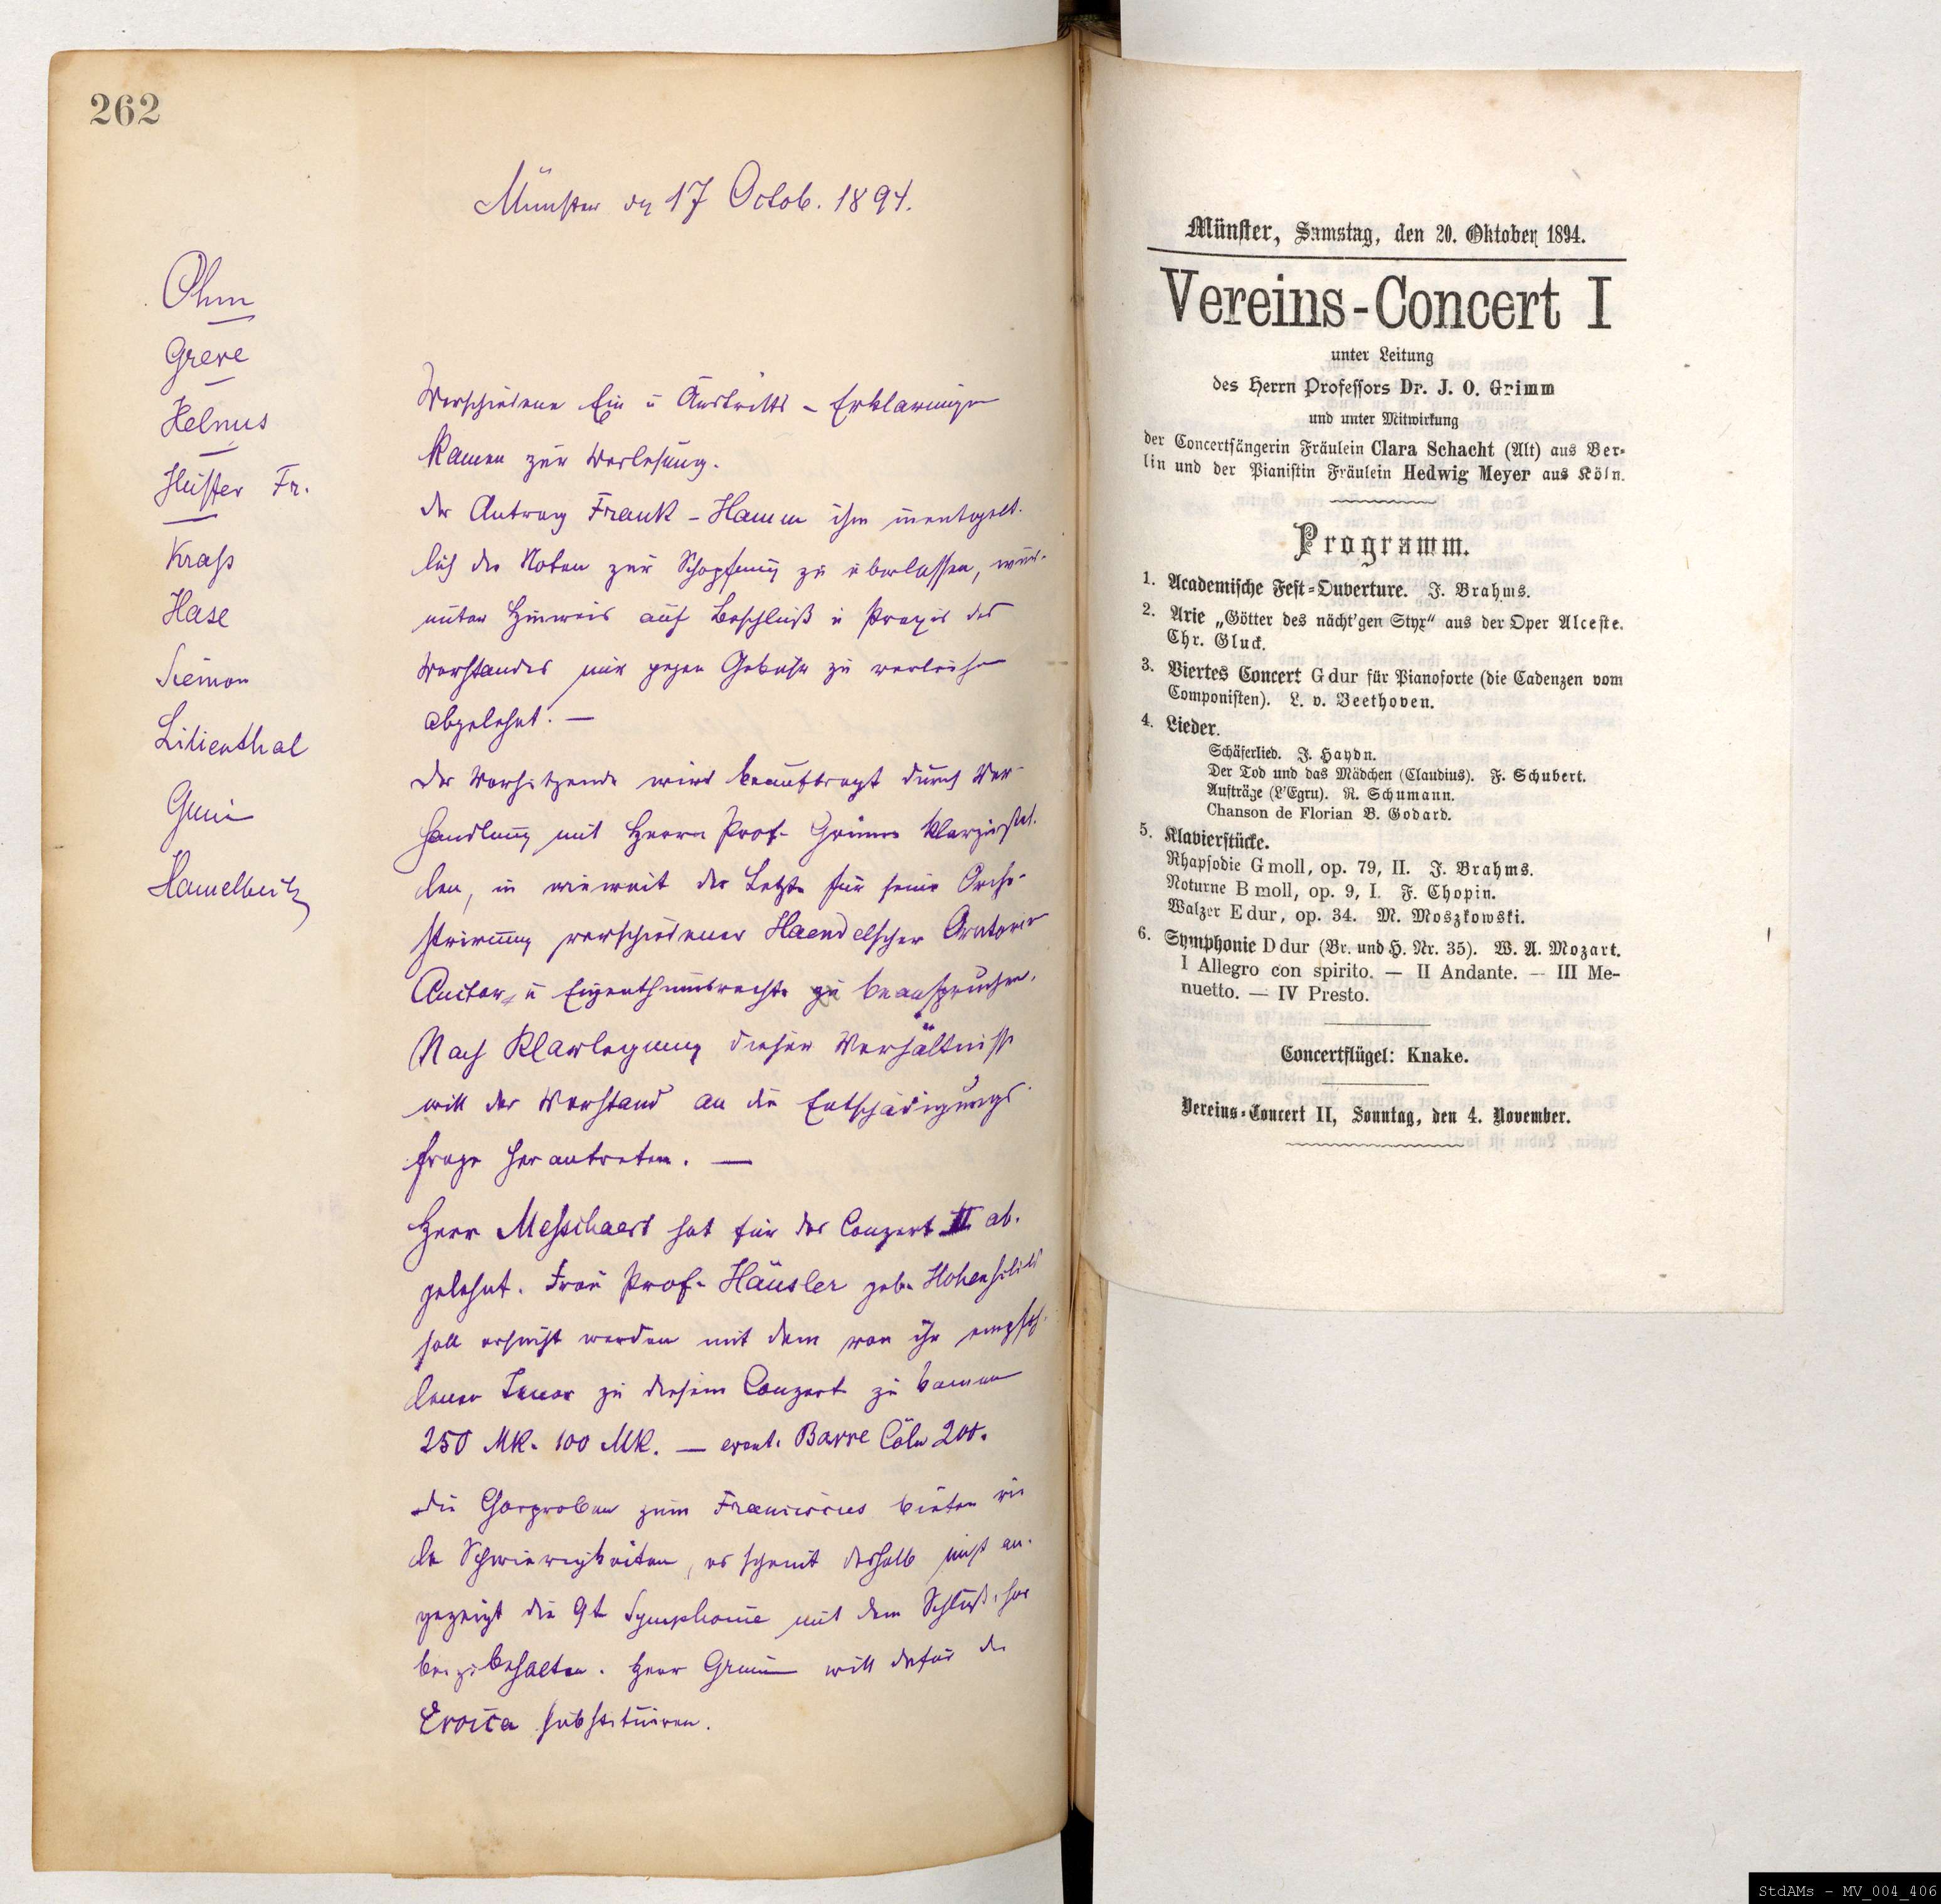 262
Münster dn 17 Octob. 1894.
Ohm
Greve
Helmus
Hüffer Fr.
Krass
Hase
Siemon
Lilienthal
Hamelbeck
Verschiedene Ein u Austritts-Erklärungen
kamen zur Verlesung.
Der Antrag Frank-Hamm ihm unentgelt-
lich die Noten zur Schöpfung zu überlassen, wird
unter Hinweis auf Beschluß u Praxis des
Vorstandes nur gegen Gebühr zu verleihen
abgelehnt. —
Der Vorsitzende wird beauftragt durch Ver-
handlung mit Herrn Prof. Grimm klarzustel-
len, in wieweit der Letzte für seine Orche-
strirung verschiedener Haendelscher Oratorien
Autor- u Eigenthumsrechte zu beanspruchen.
Nach Klarlegung dieser Verhältnisse
will der Vorstand an die Entschädigungs-
frage herantreten. —
Herr Messchaert hat für das Conzert II ab-
gelehnt. Frau Prof. Häusler geb. Hohenschild
soll ersucht werden mit dem von ihr empfoh-
lenen Tenor zu diesem Conzert zu kommen
250 Mk. 100 Mk. — event. Barre Cöln 200.
Die Chorproben zum Franciscus bieten vie
le Schwierigkeiten, es scheint deshalb nicht an-
gezeigt die 9te Symphonie mit dem Schlußchor
beizubehalten. Herr Grimm will dafür die
Eroica substituiren.
Münster, Samstag, den 20. Oktober 1894.
Vereins-Concert I
unter Leitung
des Herrn Professors Dr. J. O. Grimm
und unter Mitwirkung
der Concertsängerin Fräulein Clara Schacht (Alt) aus Ber-
lin und der Pianistin Fräulein Hedwig Meyer aus Köln.
Programm.
1. Academische Fest-Ouverture. J. Brahms.
2. Arie „Götter des nächt'gen Styx" aus der Oper Alceste.
Chr. Gluck.
3. Viertes Concert G dur für Pianoforte (die Cadenzen vom
Componisten). L. v. Beethoven.
4. Lieder.
Schäferlied. J. Haydn.
Der Tod und das Mädchen (Claudius). F. Schubert.
Aufträge (L'Egru). R. Schumann.
Chanson de Florian B. Godard.
5. Klavierstücke.
Rhapsodie G moll, op. 79, II. J. Brahms.
Noturne B moll, op. 9, I. F. Chopin.
Walzer E dur, op. 34. M. Moszkowski.
6. Symphonie D dur (Br. und H. Nr. 35). W. A. Mozart.
I Allegro con spirito. — II Andante. — III Me-
nuetto. — IV Presto.
Concertflügel: Knake.
Vereins-Concert II, Sonntag, den 4. November.
StdAMs - MV_004_406